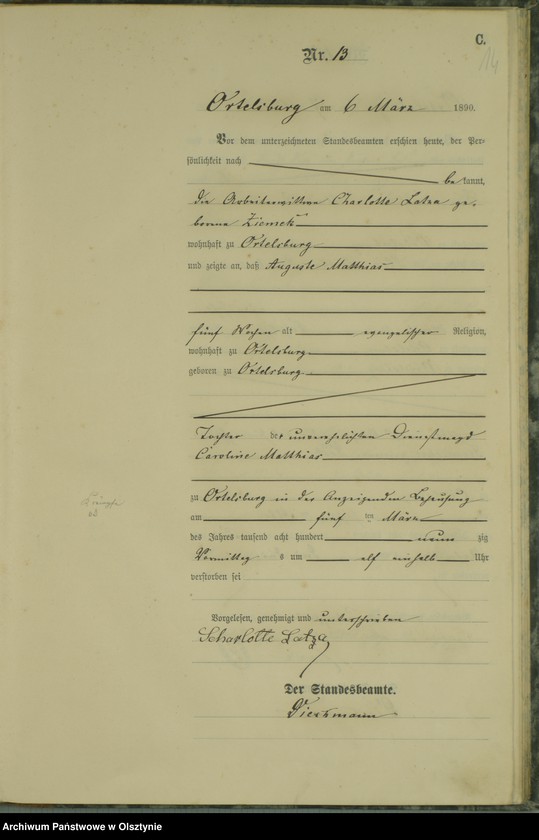 C.
14
Nr. 13
Ortelsburg am 6 März 1890.
Vor dem unterzeichneten Standesbeamten erschien heute, der Per-
sönlichkeit nach
be kannt,
die Arbeiterwittwe Charlotte Latza ge-
borene Ziemek
wohnhaft zu Ortelsburg
und zeigte an, daß Auguste Matthias
fünf Wochen alt evangelischer Religion,
wohnhaft zu Ortelsburg
geboren zu Ortelsburg
Tochter der unverehelichten Dienstmagd
Caroline Matthias
zu Ortelsburg in der Anzeigenden Behausung
am fünf ten März
des Jahres tausend acht hundert neun zig
Vormittag s um elf einhalb Uhr
verstorben sei
Vorgelesen, genehmigt und unterschrieben
Scharlotte Latza
Der Standesbeamte.
Archiwum Państwowe w Olsztynie